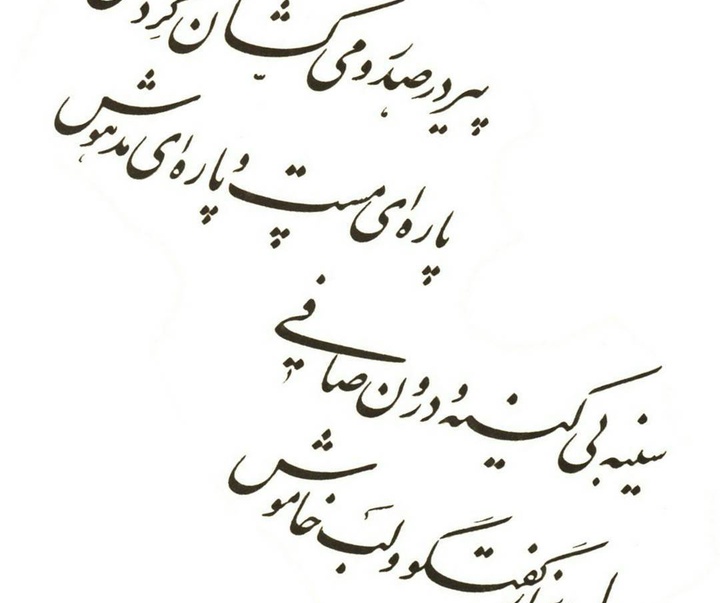 پیر در صدر و می کشان گردش
پاره ای مست و پاره ای مدهوش
سینه بی کینه و درون صافی
دل پر از گفتگو و لب خاموش